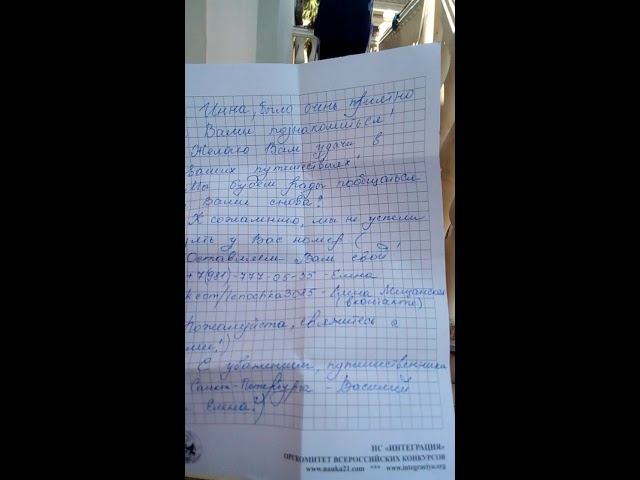 Инна, было очень приятно
Вами познакомиться!
Желаю Вам удачи в
Ваших путешествиях!
Мы будем рады пообщаться
Вами снова!
К сожалению, мы не успели
ять у Вас номер (
Оставляем Вам свой,
+7(981)-777-05-35 - Елена
- Елена Мещанская
(вконтакте)
Пожалуйста, свяжитесь с
С уважением, путешественники
Санкт-Петербурга - Василий
- Елена :)
НС «ИНТЕГРАЦИЯ»
ОРГКОМИТЕТ ВСЕРОССИЙСКИХ КОНКУРСОВ
www.nauka21.com *** www.integraciya.org